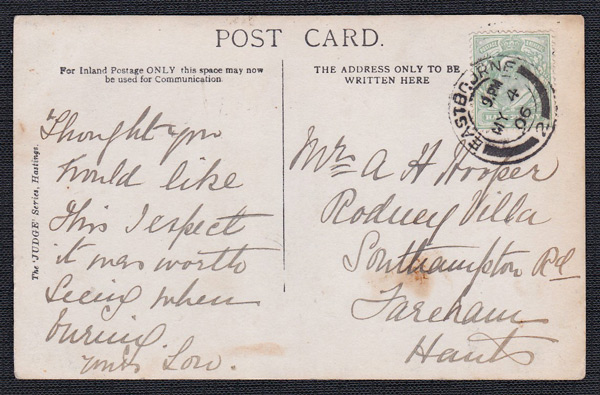 POST CARD.
For Inland Postage ONLY this space may now
be used for Communication
THE ADDRESS ONLY TO BE
WRITTEN HERE
EASTBOURNE
9 PM
MY 4
06
2
The 'JUDGE' Series, Hastings.
Thought you
would like
this I expect
it was worth
seeing when
burning
Yours Lou.
Mrs A H Hooper
Rodney Villa
Southampton Rd
Fareham
Hants